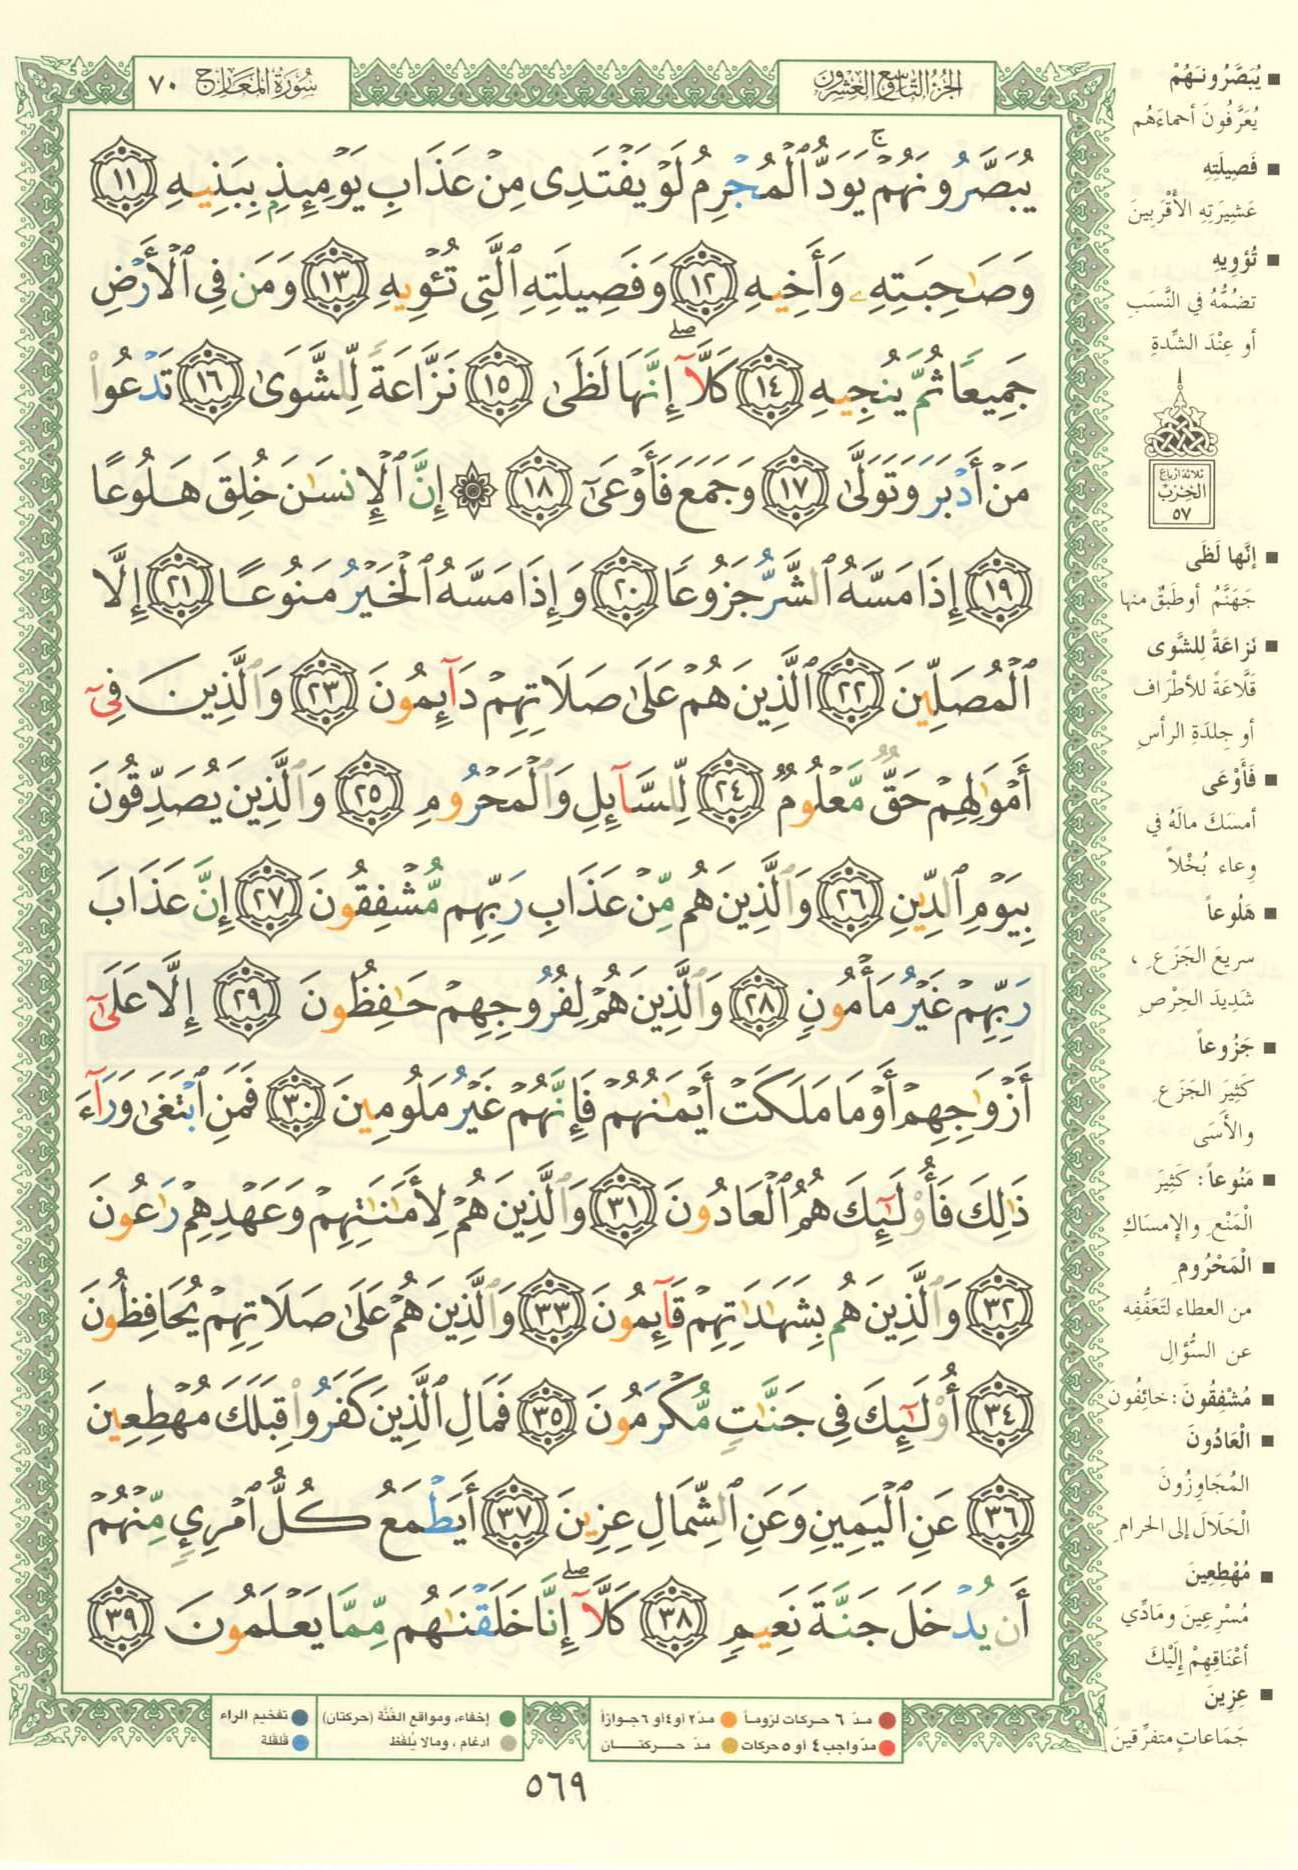 الجزء التاسع والعشرون
سورة المعارج ٧٠
يُبَصَّرُونَهُمْ ۚ يَوَدُّ ٱلْمُجْرِمُ لَوْ يَفْتَدِى مِنْ عَذَابِ يَوْمِئِذٍۭ بِبَنِيهِ ١١
وَصَٰحِبَتِهِۦ وَأَخِيهِ ١٢ وَفَصِيلَتِهِ ٱلَّتِى تُـْٔوِيهِ ١٣ وَمَن فِى ٱلْأَرْضِ
جَمِيعًا ثُمَّ يُنجِيهِ ١٤ كَلَّآ ۖ إِنَّهَا لَظَىٰ ١٥ نَزَّاعَةً لِّلشَّوَىٰ ١٦ تَدْعُوا۟
مَنْ أَدْبَرَ وَتَوَلَّىٰ ١٧ وَجَمَعَ فَأَوْعَىٰٓ ١٨ ۞ إِنَّ ٱلْإِنسَٰنَ خُلِقَ هَلُوعًا
١٩ إِذَا مَسَّهُ ٱلشَّرُّ جَزُوعًا ٢٠ وَإِذَا مَسَّهُ ٱلْخَيْرُ مَنُوعًا ٢١ إِلَّا
ٱلْمُصَلِّينَ ٢٢ ٱلَّذِينَ هُمْ عَلَىٰ صَلَاتِهِمْ دَآئِمُونَ ٢٣ وَٱلَّذِينَ فِىٓ
أَمْوَٰلِهِمْ حَقٌّ مَّعْلُومٌ ٢٤ لِّلسَّآئِلِ وَٱلْمَحْرُومِ ٢٥ وَٱلَّذِينَ يُصَدِّقُونَ
بِيَوْمِ ٱلدِّينِ ٢٦ وَٱلَّذِينَ هُم مِّنْ عَذَابِ رَبِّهِم مُّشْفِقُونَ ٢٧ إِنَّ عَذَابَ
رَبِّهِمْ غَيْرُ مَأْمُونٍ ٢٨ وَٱلَّذِينَ هُمْ لِفُرُوجِهِمْ حَٰفِظُونَ ٢٩ إِلَّا عَلَىٰٓ
أَزْوَٰجِهِمْ أَوْ مَا مَلَكَتْ أَيْمَٰنُهُمْ فَإِنَّهُمْ غَيْرُ مَلُومِينَ ٣٠ فَمَنِ ٱبْتَغَىٰ وَرَآءَ
ذَٰلِكَ فَأُو۟لَٰٓئِكَ هُمُ ٱلْعَادُونَ ٣١ وَٱلَّذِينَ هُمْ لِأَمَٰنَٰتِهِمْ وَعَهْدِهِمْ رَٰعُونَ
٣٢ وَٱلَّذِينَ هُم بِشَهَٰدَٰتِهِمْ قَآئِمُونَ ٣٣ وَٱلَّذِينَ هُمْ عَلَىٰ صَلَاتِهِمْ يُحَافِظُونَ
٣٤ أُو۟لَٰٓئِكَ فِى جَنَّٰتٍ مُّكْرَمُونَ ٣٥ فَمَالِ ٱلَّذِينَ كَفَرُوا۟ قِبَلَكَ مُهْطِعِينَ
٣٦ عَنِ ٱلْيَمِينِ وَعَنِ ٱلشِّمَالِ عِزِينَ ٣٧ أَيَطْمَعُ كُلُّ ٱمْرِئٍ مِّنْهُمْ
أَن يُدْخَلَ جَنَّةَ نَعِيمٍ ٣٨ كَلَّآ ۖ إِنَّا خَلَقْنَٰهُم مِّمَّا يَعْلَمُونَ ٣٩
■ يُبَصَّرُونَهُمْ
يُعَرَّفُونَ أحماءَهُم
■ فَصِيلَتِهِ
عَشِيرَتِهِ الأَقْرَبِينَ
■ تُؤوِيهِ
تضُمُّهُ في النَّسَبِ
أو عِنْدَ الشِّدةِ
ثلاثة أرباع
الحِزب
٥٧
■ إنَّها لَظَى
جَهَنَّمُ أو طَبَقٌ منها
■ نَزاعَةً لِلشَّوى
قَلَّاعَةً للأطْرَاف
أو جِلدَةِ الرأسِ
■ فَأَوْعَى
أمسَكَ مالَهُ في
وِعاء بُخْلاً
■ هَلُوعاً
سريعَ الجَزَعِ ،
شَدِيدَ الحِرْصِ
■ جَزُوعاً
كَثِيرَ الجَزَعِ
والأَسَى
■ مَنُوعاً : كَثِيرَ
الْمَنْعِ والإِمسَاكِ
■ الْمَحْرُومِ
من العطاء لتَعَفُّفِه
عن السُّؤَالِ
■ مُشْفِقُونَ : خائِفُونَ
■ الْعَادُونَ
المُجَاوِزُونَ
الْحَلَالَ إلى الحرامِ
■ مُهْطِعِينَ
مُسْرِعِينَ ومَادِّي
أعْنَاقِهِمْ إِلَيْكَ
■ عِزِينَ
جَمَاعَاتٍ متفرِّقينَ
مدّ ٦ حركات لزوماً ● مدّ ٢ أو ٤ أو ٦ جوازاً
مدّ واجب ٤ أو ٥ حركات ● مدّ حركتان
إخفاء، ومواقع الغُنَّة (حركتان) ● تفخيم الراء
ادغام ، ومالا يُلفَظ ● قلقلة
٥٦٩